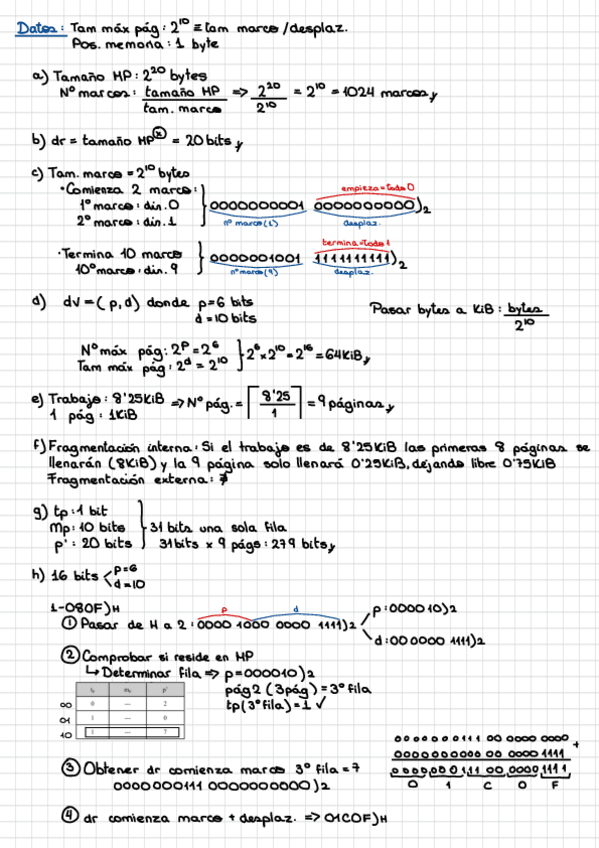 Datos: Tam máx pág: 2^10 ≡ tam marco/desplaz.
Pos. memoria: 1 byte
a) Tamaño MP: 2^20 bytes
Nº marcos: tamaño MP / tam. marco => 2^20 / 2^10 = 2^10 = 1024 marcos
b) dr = tamaño MP^(x) = 20 bits
c) Tam. marco = 2^10 bytes
• Comienza 2 marco:
1º marco: din. 0
2º marco: din. 1
empieza = todo 0
0000000001 0000000000)2
nº marco (1) desplaz.
• Termina 10 marco
10º marco: din. 9
termina = todo 1
0000001001 1111111111)2
nº marco (9) desplaz.
d) dv = (p, d) donde p = 6 bits
d = 10 bits
Pasar bytes a KiB: bytes / 2^10
Nº máx pág: 2^p = 2^6
Tam máx pág: 2^d = 2^10
} 2^6 × 2^10 = 2^16 = 64KiB
e) Trabajo: 8'25KiB => Nº pág. = ⌈8'25 / 1⌉ = 9 páginas
1 pág: 1KiB
f) Fragmentación interna: Si el trabajo es de 8'25KiB las primeras 8 páginas se
llenarán (8KiB) y la 9 página solo llenará 0'25KiB, dejando libre 0'75KiB
Fragmentación externa: ∄
g) tp: 1 bit
Mp: 10 bits
p': 20 bits
} 31 bits una sola fila
31bits × 9 págs: 279 bits
h) 16 bits < p=6
d=10
1-080F)H
p d
① Pasar de H a 2: 0000 1000 0000 1111)2
p: 0000 10)2
d: 00 0000 1111)2
② Comprobar si reside en MP
↳ Determinar fila => p = 000010)2
pág 2 (3pág) = 3º fila
tp(3º fila) = 1 ✓
p'
00 0 — 2
01 1 — 0
10 1 — 7
③ Obtener dr comienza marco 3º fila = 7
0000000111 0000000000)2
0000000111 00 0000 0000
+
0000000000 00 0000 1111
0000000111 00 0000 1111
0 1 C 0 F
④ dr comienza marco + desplaz. => 01C0F)H